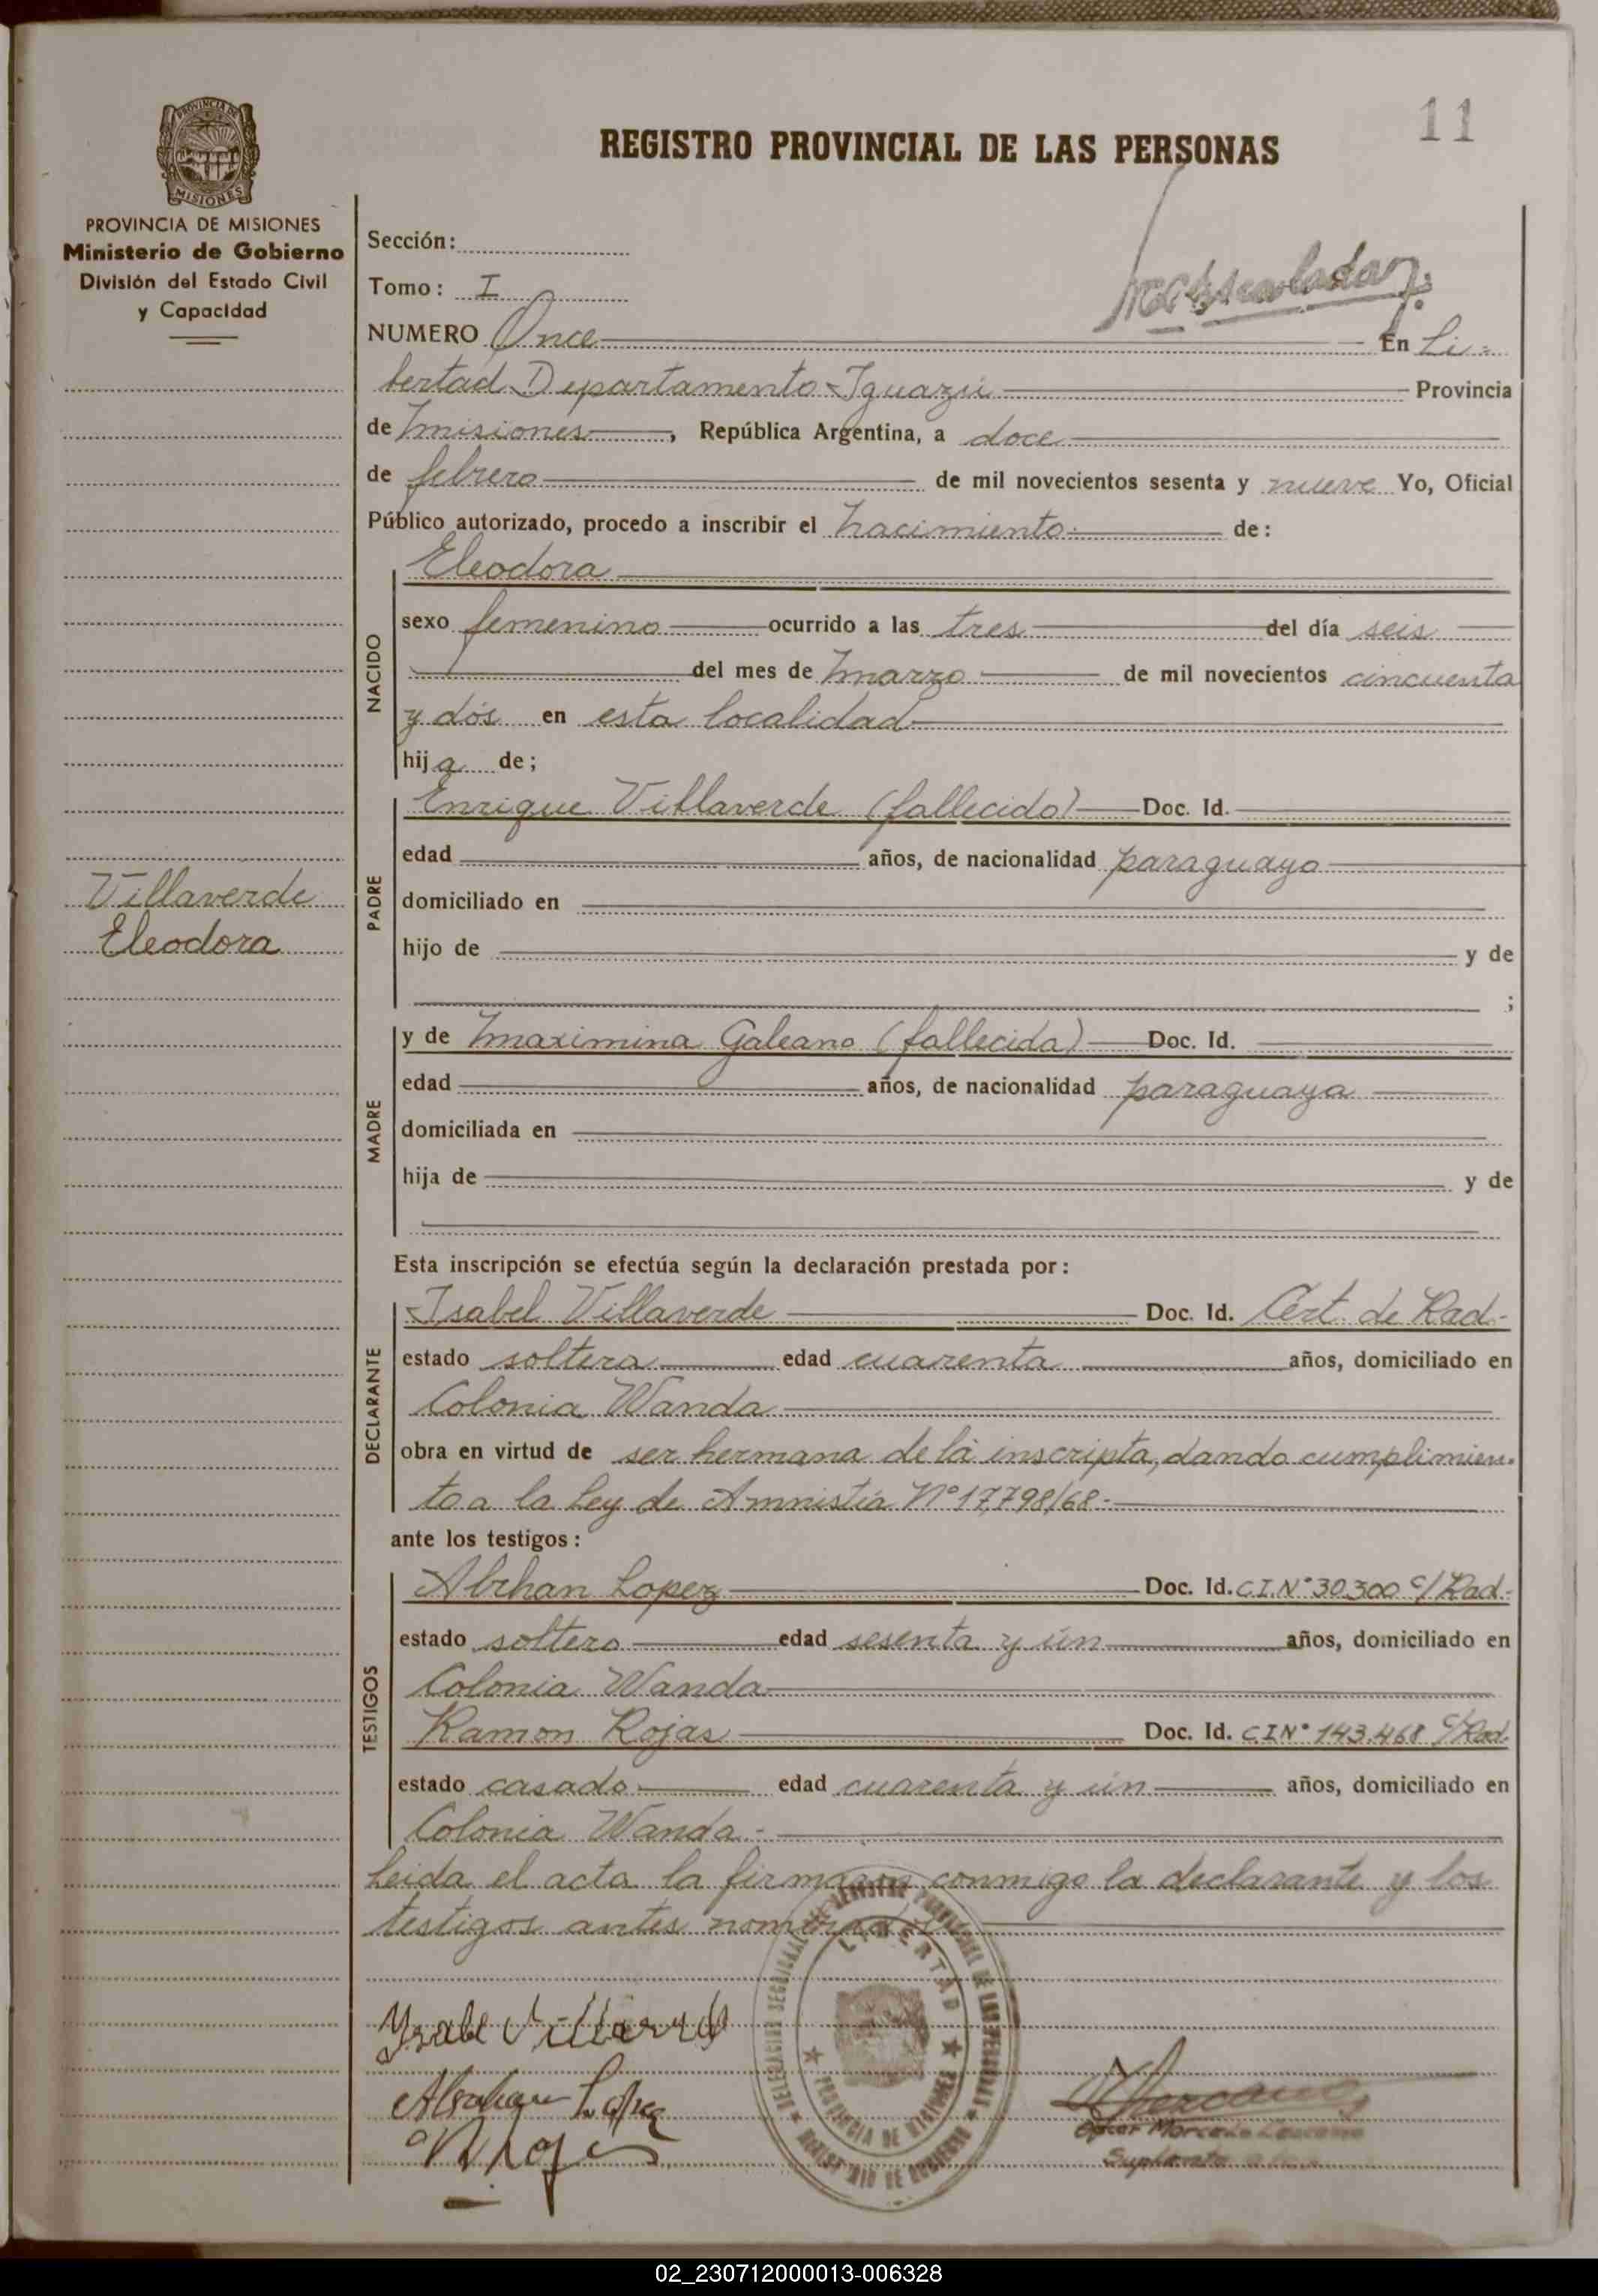 11
REGISTRO PROVINCIAL DE LAS PERSONAS
PROVINCIA DE
MISIONES
PROVINCIA DE MISIONES
Ministerio de Gobierno
División del Estado Civil
y Capacidad
Sección:
Tomo: I
NUMERO Once En Li-
bertad Departamento Iguazú Provincia
de Misiones, República Argentina, a doce
de febrero de mil novecientos sesenta y nueve Yo, Oficial
Público autorizado, procedo a inscribir el Nacimiento de:
NACIDO
Eleodora
sexo femenino ocurrido a las tres del día seis
del mes de Marzo de mil novecientos cincuenta
y dós en esta localidad
hija de;
PADRE
Enrique Villaverde (fallecido) Doc. Id.
edad años, de nacionalidad paraguayo
Villaverde
Eleodora
domiciliado en
hijo de y de
;
MADRE
y de Maximina Galeano (fallecida) Doc. Id.
edad años, de nacionalidad paraguaya
domiciliada en
hija de y de
Esta inscripción se efectúa según la declaración prestada por:
DECLARANTE
Isabel Villaverde Doc. Id. Cert. de Rad.
estado soltera edad cuarenta años, domiciliado en
Colonia Wanda
obra en virtud de ser hermana de la inscripta, dando cumplimien-
to a la Ley de Amnistía Nº 17.798/68.
ante los testigos:
TESTIGOS
Abrhan Lopez Doc. Id. C.I.Nº 30.300 c/Rad.
estado soltero edad sesenta y ún años, domiciliado en
Colonia Wanda
Ramon Rojas Doc. Id. C.I.Nº 143.468 c/Rad.
estado casado edad cuarenta y ún años, domiciliado en
Colonia Wanda.-
Leida el acta la firmaron conmigo la declarante y los
testigos antes nombrados
LIBERTAD
PROVINCIA DE MISIONES
Abrahan Lopez
R Rojas
Suplente
02_230712000013-006328